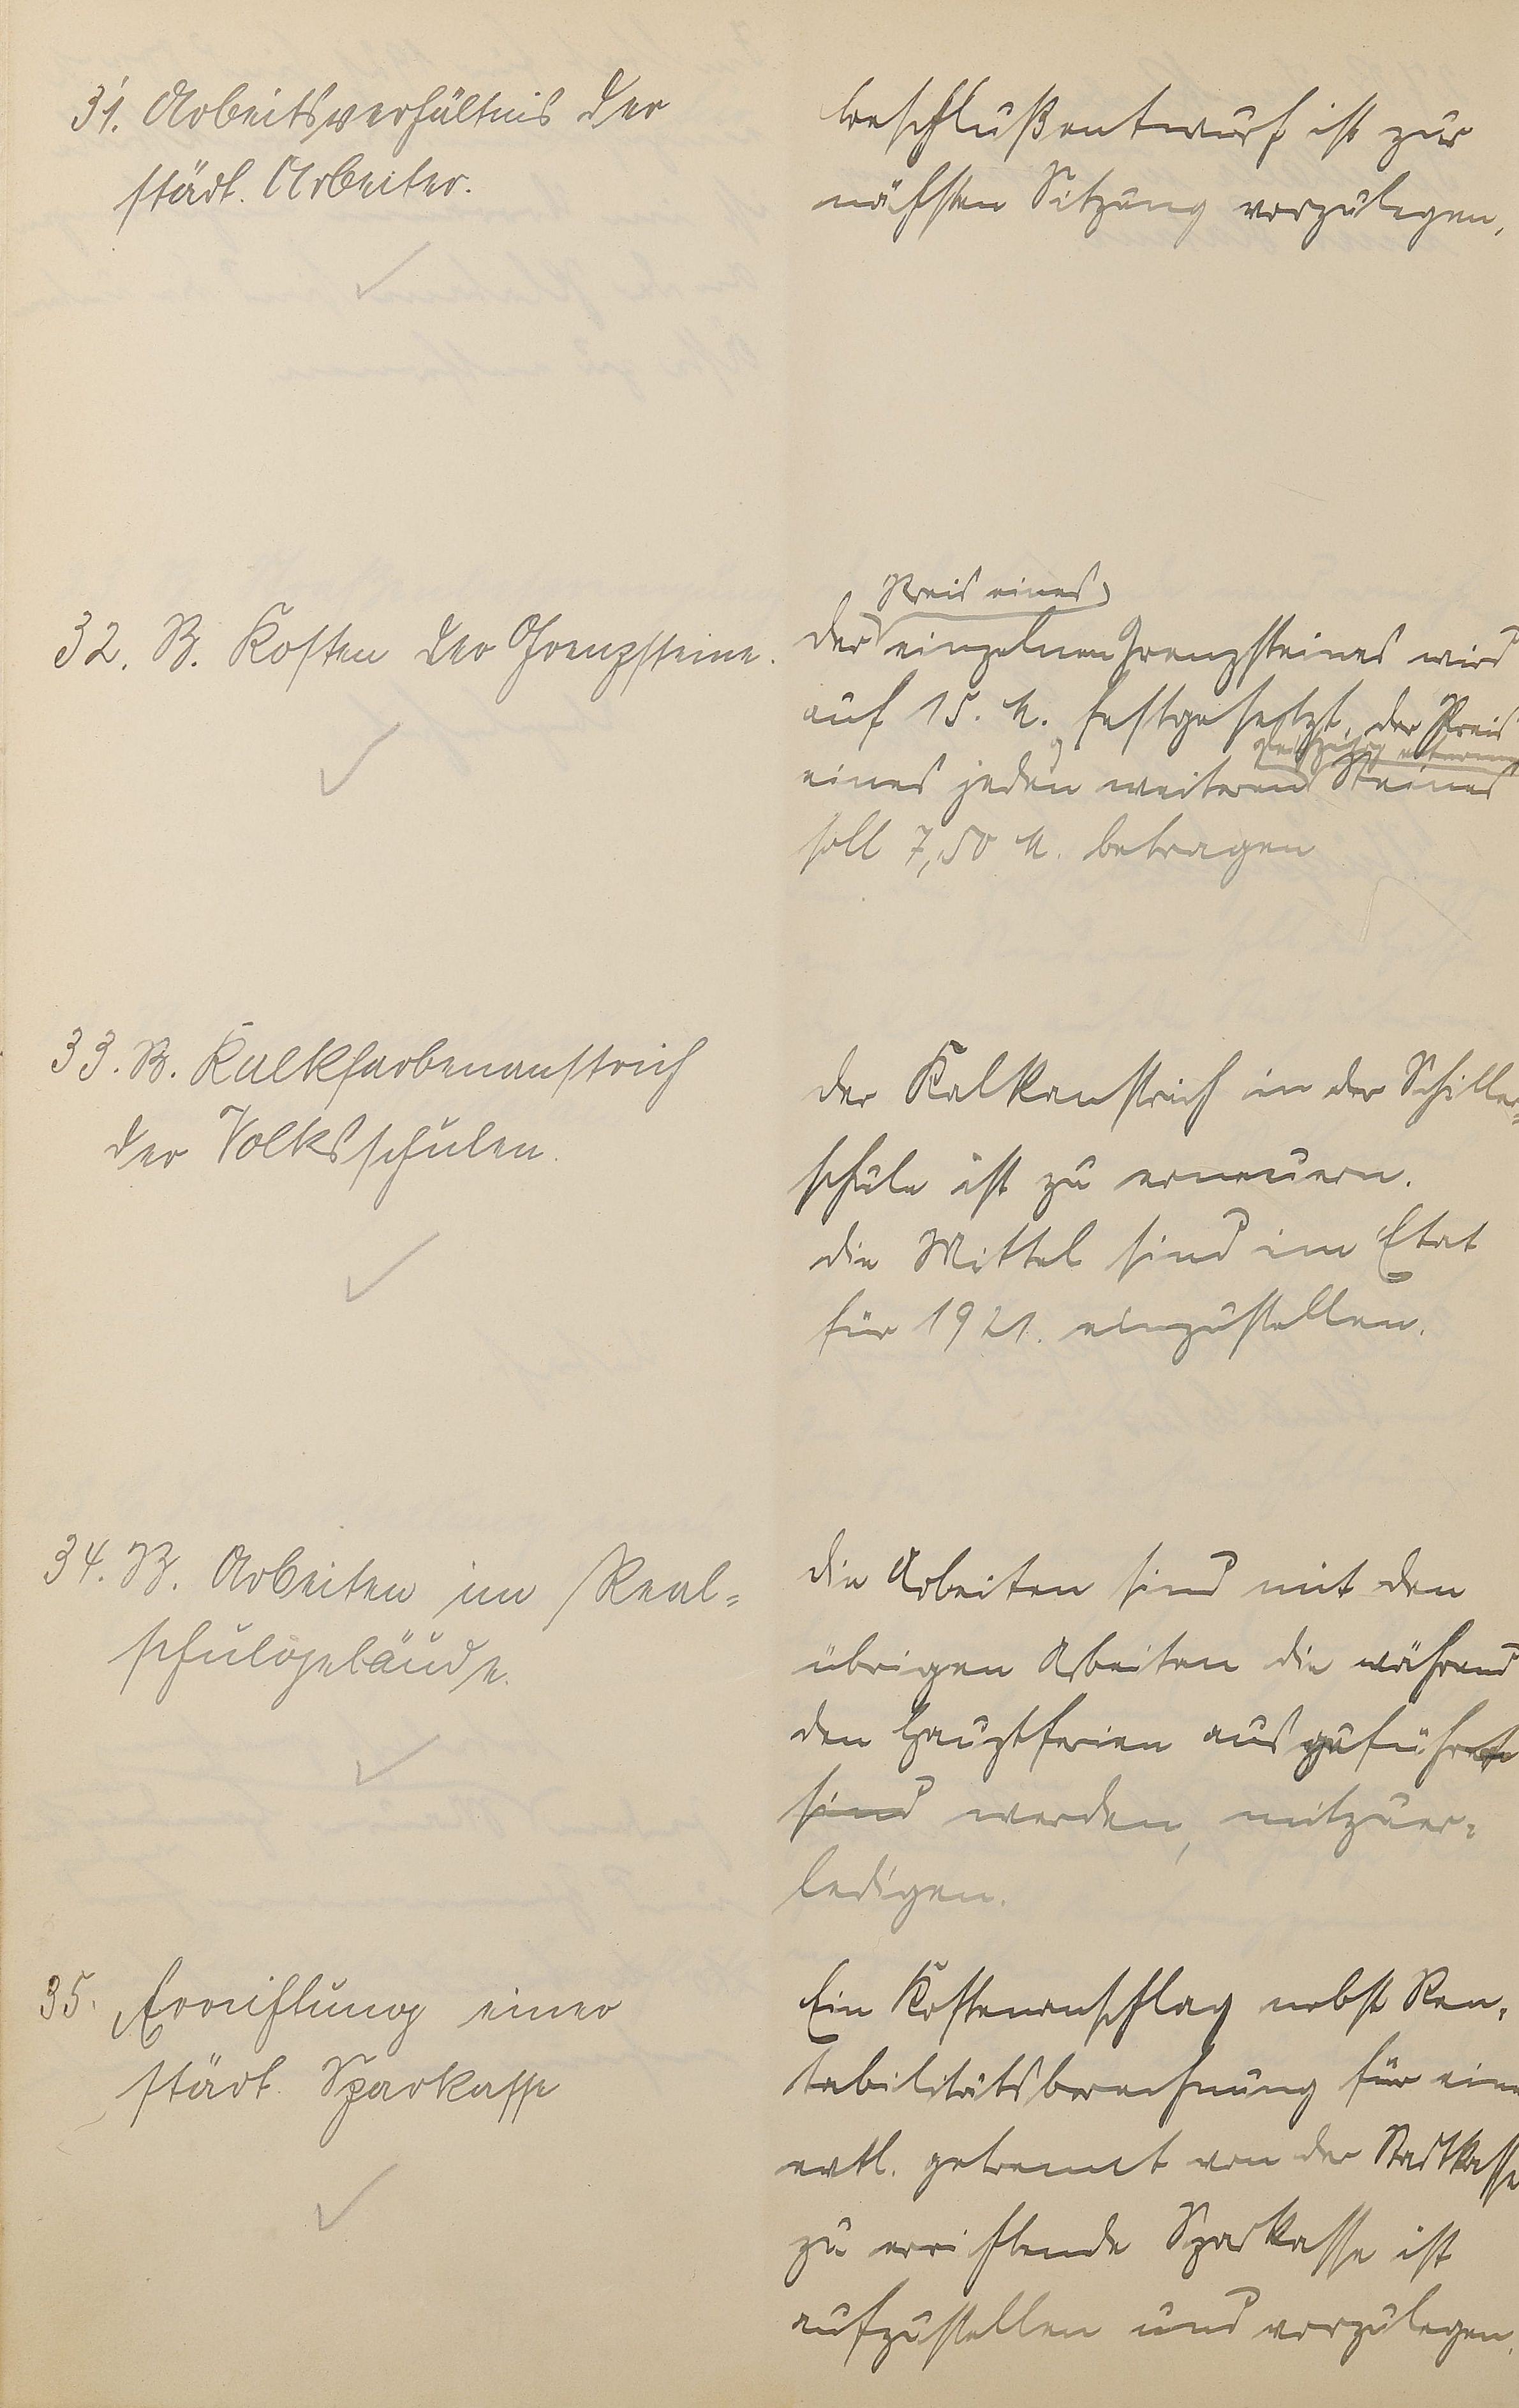 31. Arbeitsverhältnis der
städt. Arbeiter.
beschlußentwurf ist zur
nächsten Sitzung vorzulegen.
32. B. Kosten der Grenzsteine.
Preis eines
der einzelnen Grenzsteines wird
auf 15. M. festgesetzt, der Preis
eines jeden weiteren Steines
soll 7,50 M. betragen
33. B. Kalkfarbenanstrich
der Volksschulen.
der Kalkanstrich in der Schiller-
schule ist zu erneuern.
die Mittel sind im Etat
für 1921. einzustellen.
34. B. Arbeiten im Real-
schulgebäude.
die Arbeiten sind mit den
übrigen Arbeiten die während
den Hauptferien ausgeführt
sind werden, mitzuer-
ledigen.
35. Errichtung einer
städt. Sparkasse
Ein Kostenanschlag nebst Ren-
tabilitätsberechnung für eine
evtl. getrennt von der Stadtkasse
zu errichtende Sparkasse ist
aufzustellen und vorzulegen.